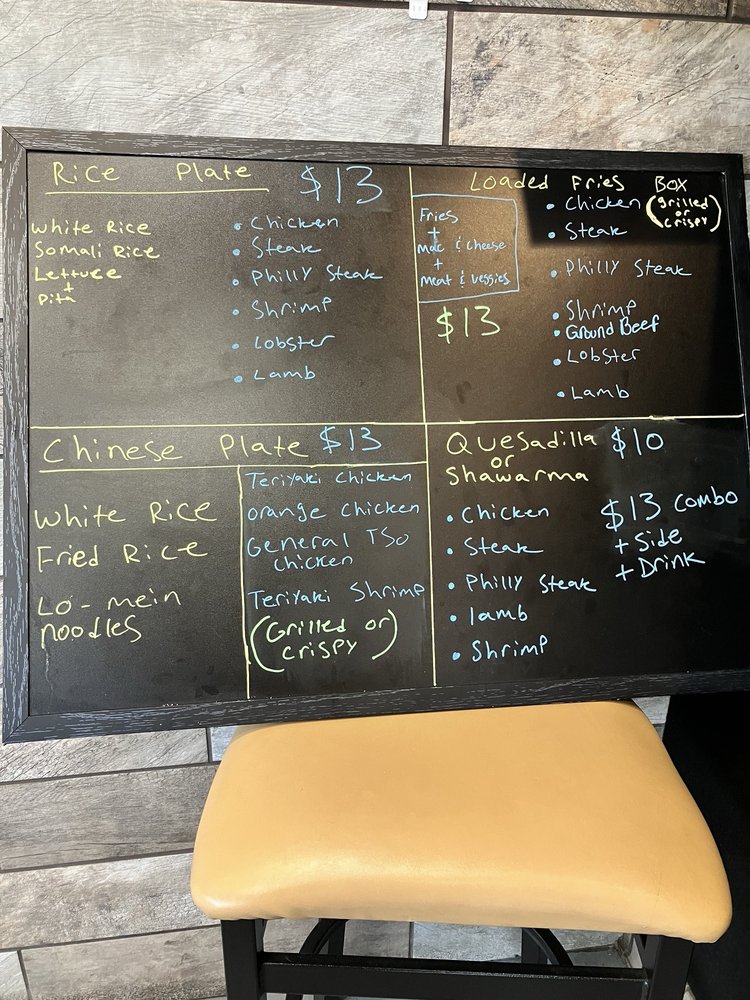 Rice Plate $13
White Rice
Somali Rice
Lettuce
+
Pita
• Chicken
• Steak
• Philly Steak
• Shrimp
• Lobster
• Lamb
Loaded Fries Box
Fries
+
Mac & Cheese
+
Meat & Veggies
$13
• Chicken (Grilled or Crispy)
• Steak
• Philly Steak
• Shrimp
• Ground Beef
• Lobster
• Lamb
Chinese Plate $13
White Rice
Fried Rice
Lo-mein
noodles
Teriyaki Chicken
Orange Chicken
General Tso
Chicken
Teriyaki Shrimp
(Grilled or
Crispy)
Quesadilla $10
or
Shawarma
• Chicken
• Steak
• Philly Steak
• lamb
• Shrimp
$13 combo
+ Side
+ Drink